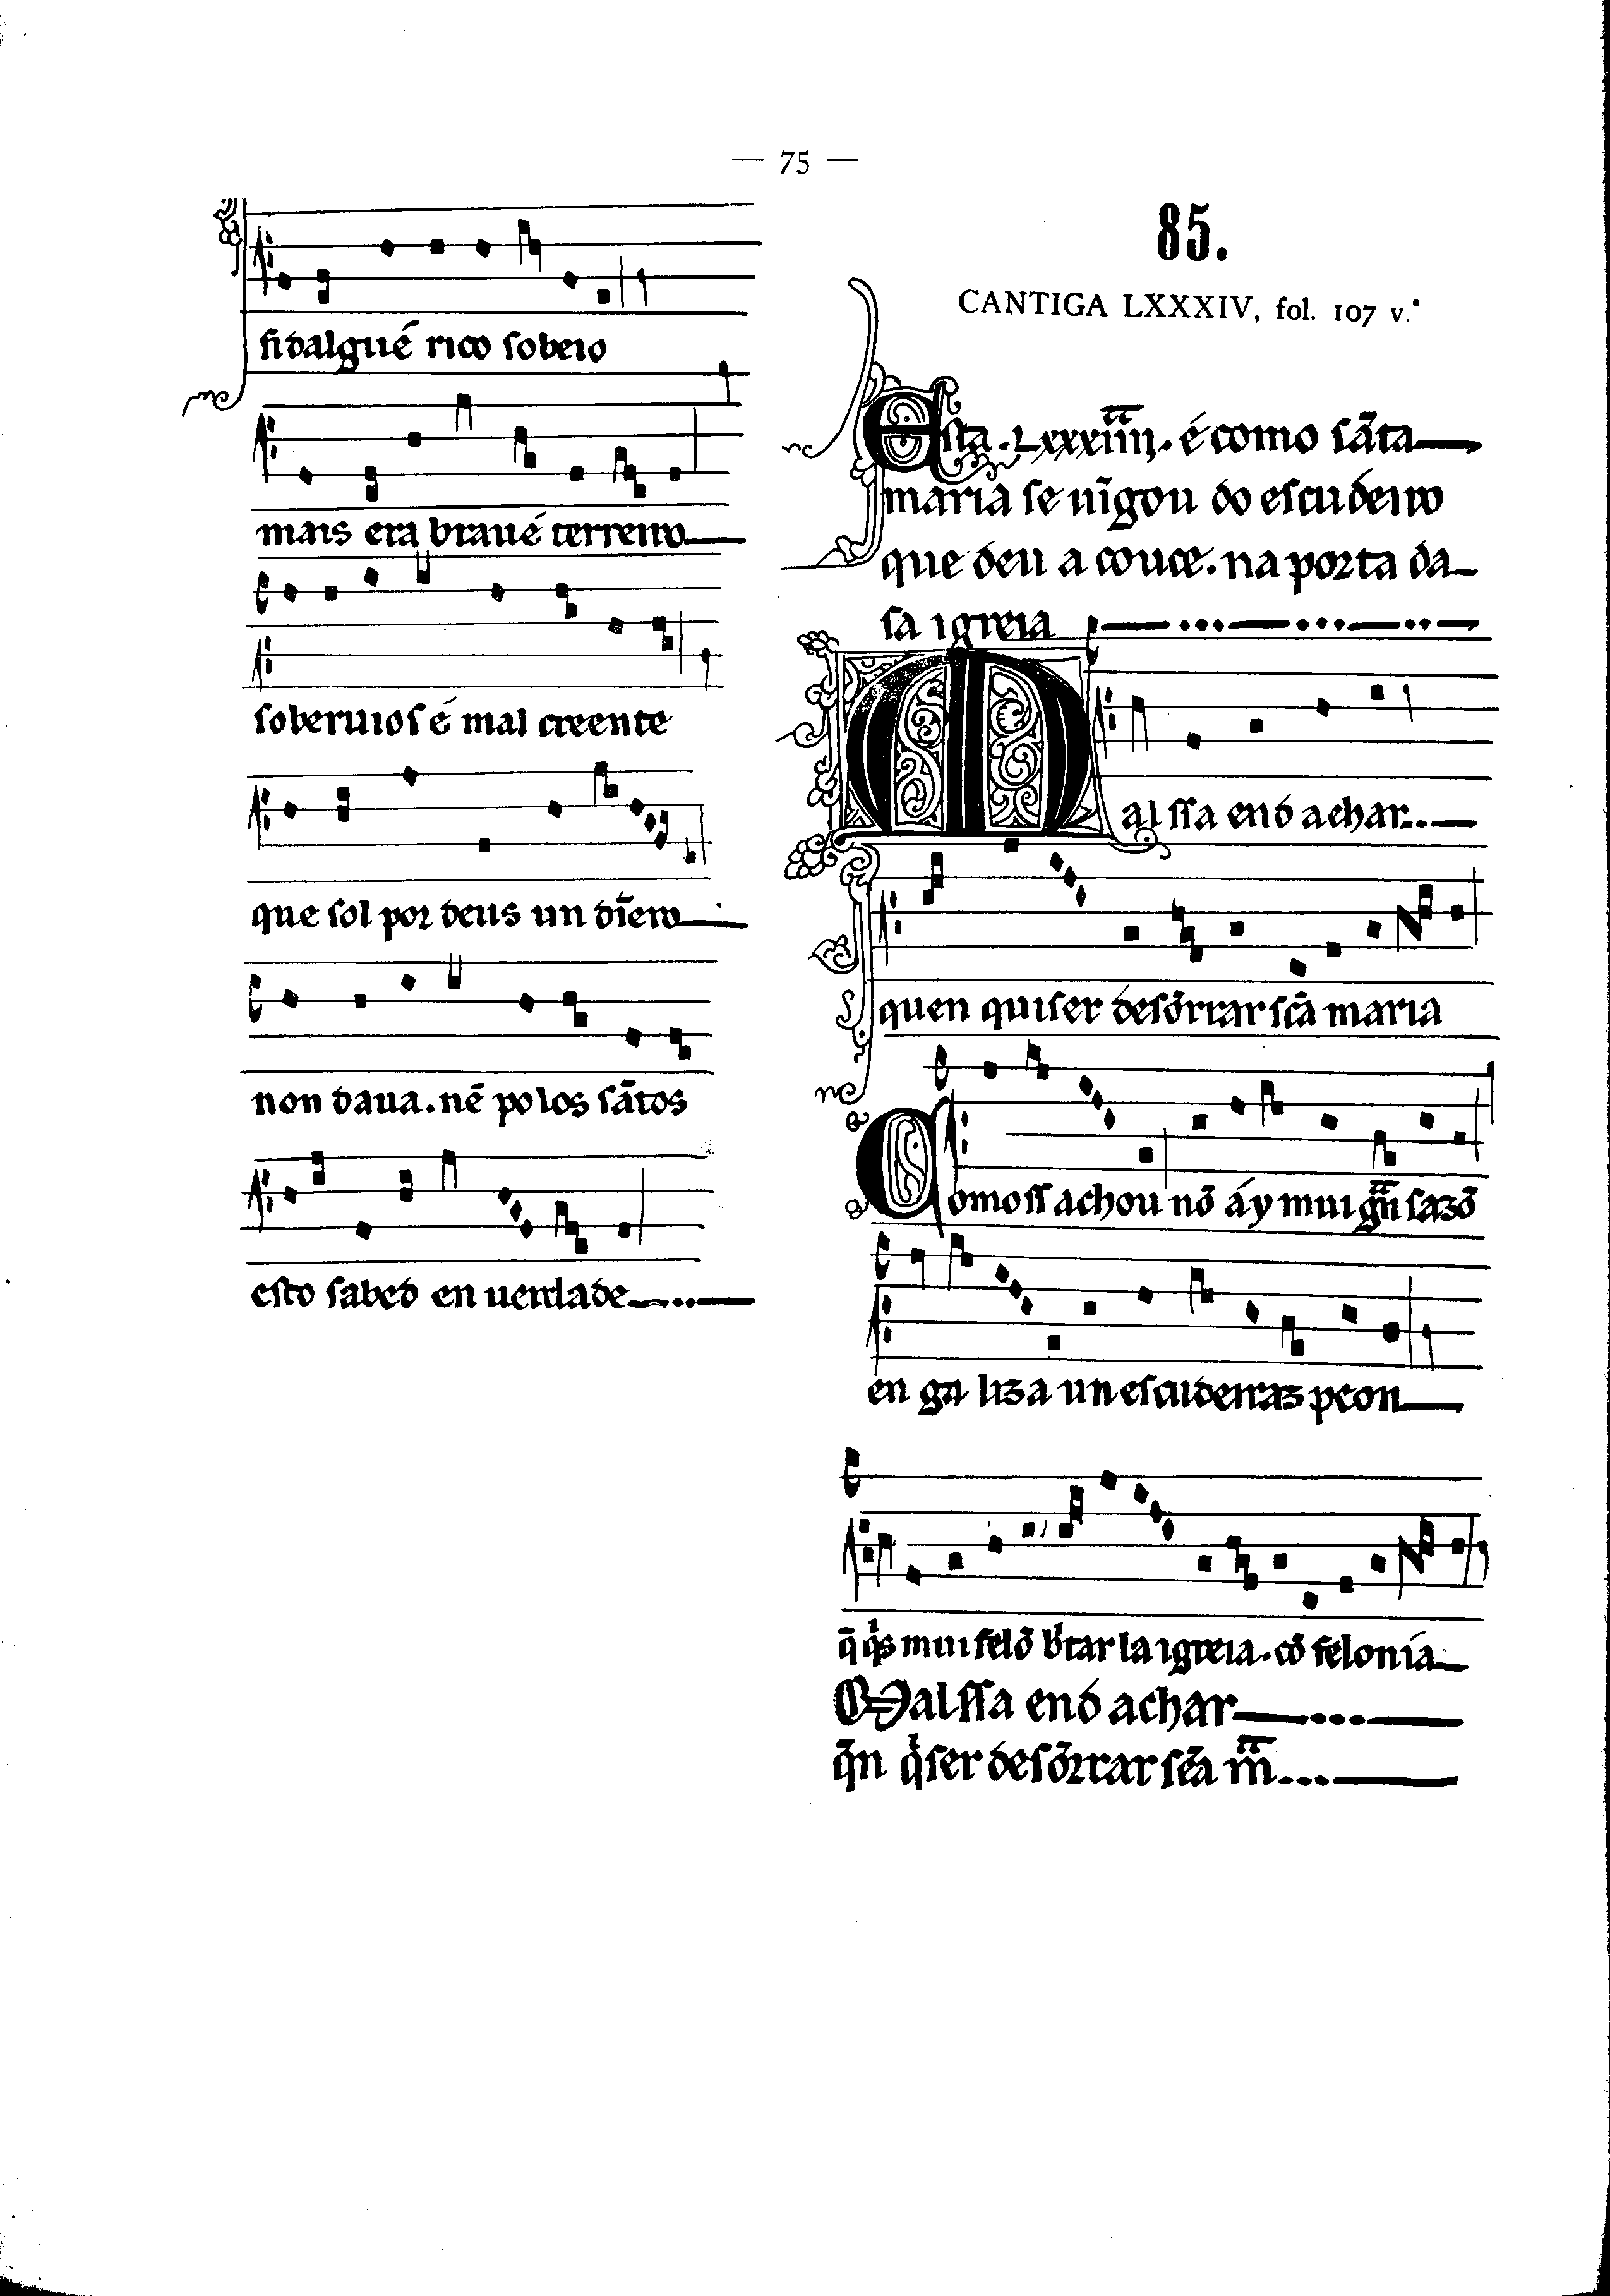 — 75 —
fidalgué rico soberio
mais era braué terreiro
soberuios é mal creente
que sol por deus un dĩero
non daua. nẽ polos sãtos
esto sabed en uerdade
85.
CANTIGA LXXXIV, fol. 107 v.º
Esta .Lxxxiiii. é como sãta
maria se uĩgou do escudeiro
que deu a couce. na porta da
sa igreia
Mal ssa end achar
quen quiser desõrrar scã maria
Como ss achou nõ áy mui grñ sazõ
en ga liza un escudeiraz peon
q̄ qͥs mui felõ brͥtar la igreia. cõ felonía
Mal ssa end achar
q̄n qͥser desõrrar scã m̄